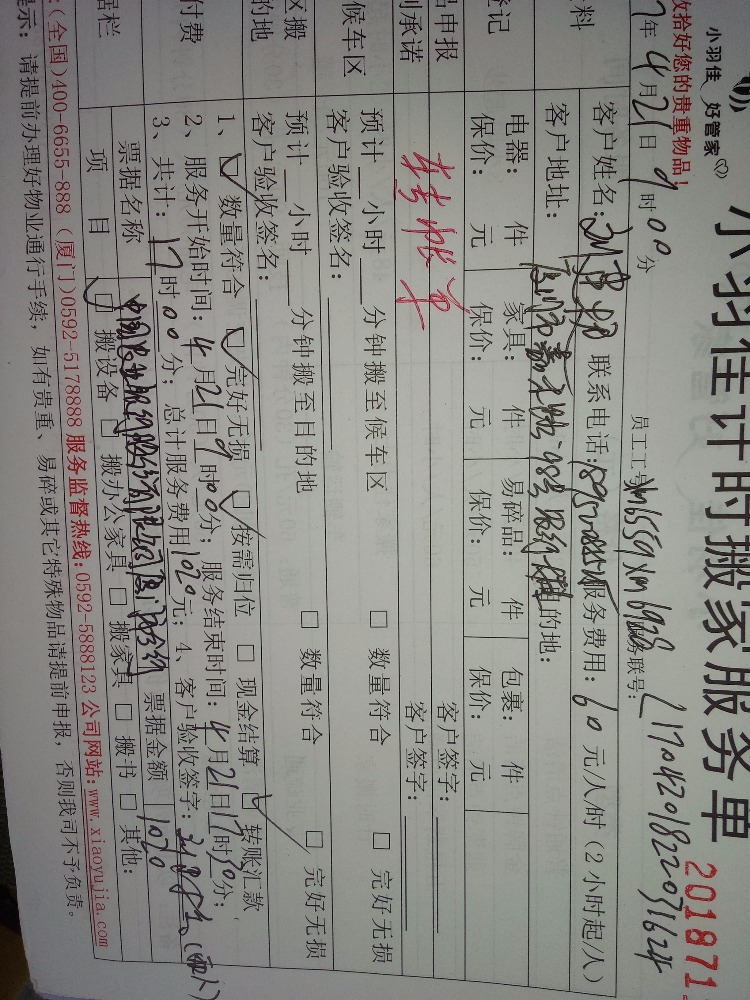 小羽佳 好管家
小羽佳计时搬家服务单
201871
收拾好您的贵重物品!
7年4月21日9时00分
员工工号 Xm6559 Xm6928
务联号:
客户姓名:
联系电话:
服务费用:60元/人/时(2小时起/人)
客户地址:
的地:
登记
电器: 件 家具: 件 易碎品: 件 包裹: 件
保价: 元 保价: 元 保价: 元 保价: 元
申报
客户签字:
承诺
客户签字:
转帐单
候车区
预计 小时 分钟搬至候车区 □ 数量符合 □ 完好无损
客户验收签名:
区搬
的地
预计 小时 分钟搬至目的地 □ 数量符合 □ 完好无损
客户验收签名:
付费
1、□ 数量符合 □ 完好无损 □ 按需归位 □ 现金结算 □ 转账汇款
2、服务开始时间:4月21日9时00分;服务结束时间:4月21日17时30分;
3、共计:17时00分;总计服务费用1020元;4、客户验收签字:
据栏
票据名称
票据金额 1020
项目
□ 搬设备 □ 搬办公家具 □ 搬家具 □ 搬书 □ 其他:
:(全国)400-6655-888 (厦门)0592-5178888 服务监督热线:0592-5888123 公司网站:www.xiaoyujia.com
示: 请提前办理好物业通行手续,如有贵重、易碎或其它特殊物品请提前申报,否则我司不予负责。